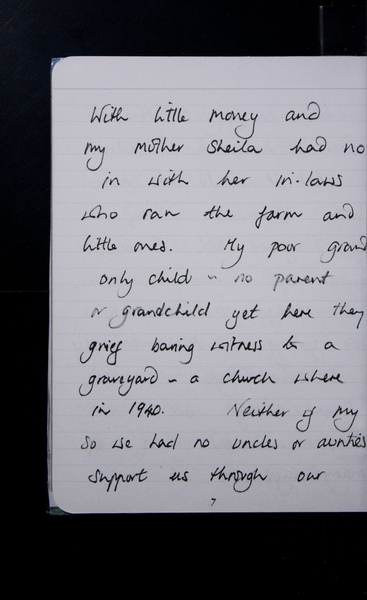 With little money and
my mother Sheila had no
in with her in-laws
who ran the farm and
little ones. My poor grand
only child ~ no parent
or grandchild yet here they
grief baring witness to a
graveyard ~ a church where
in 1940. Neither of my
So we had no uncles or aunties
support us through our
7